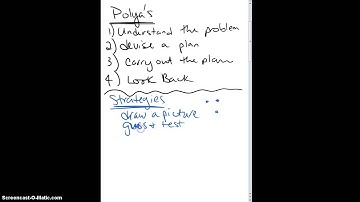 Polya's
1) Understand the problem
2) devise a plan
3) carry out the plan
4) Look Back
Strategies
draw a picture
guess + test
Screencast-O-Matic.com